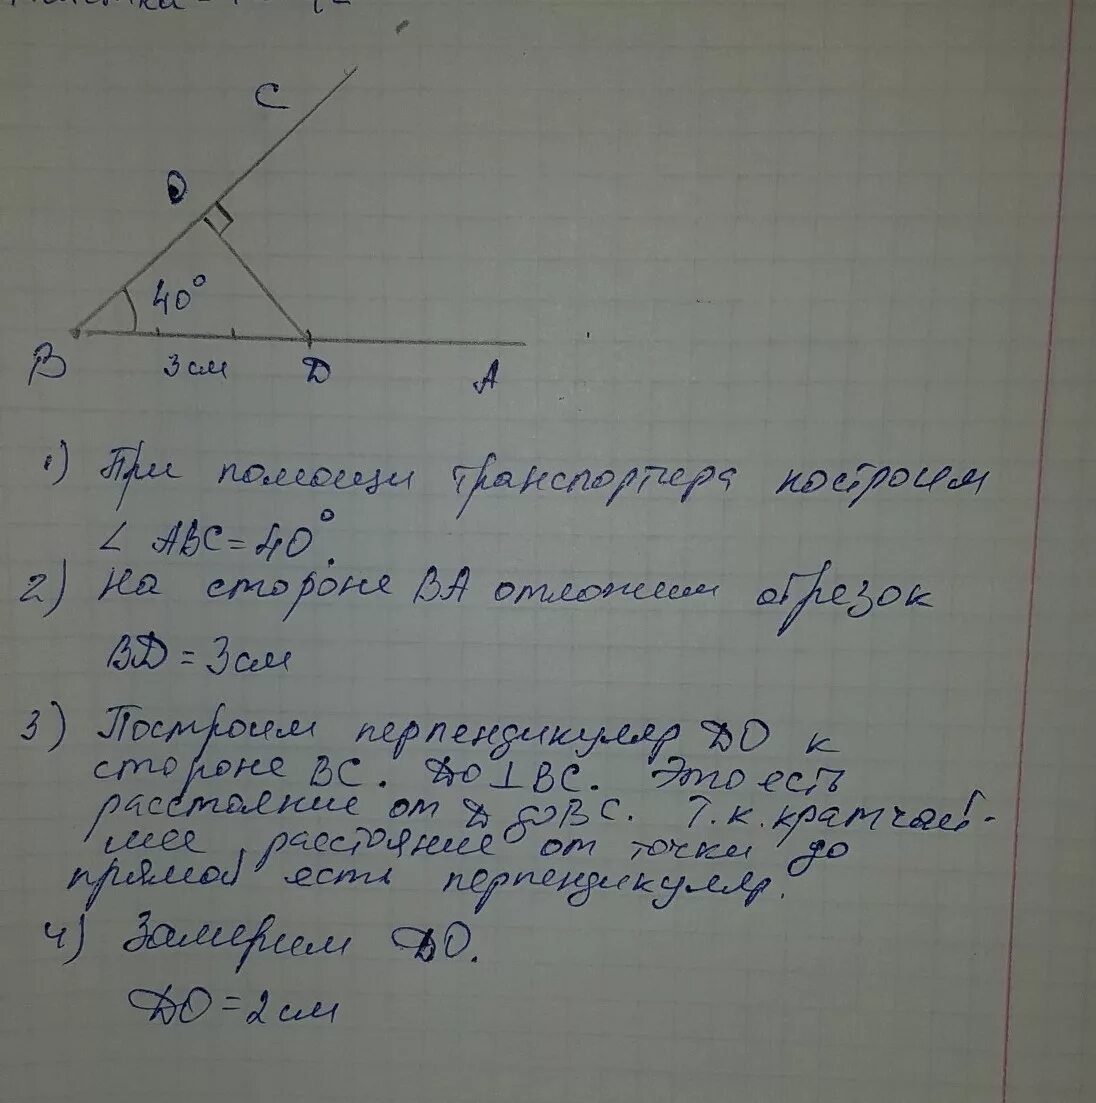 C
O
40°
B
3 см
D
A
1) При помощи транспортира построим
∠ ABC = 40°.
2) На стороне BA отложим отрезок
BD = 3 см
3) Построим перпендикуляр DO к
стороне BC. DO ⊥ BC. Это есть
расстояние от D до BC. Т.к. кратчай-
шее расстояние от точки до
прямой есть перпендикуляр.
4) Замерим DO.
DO = 2 см